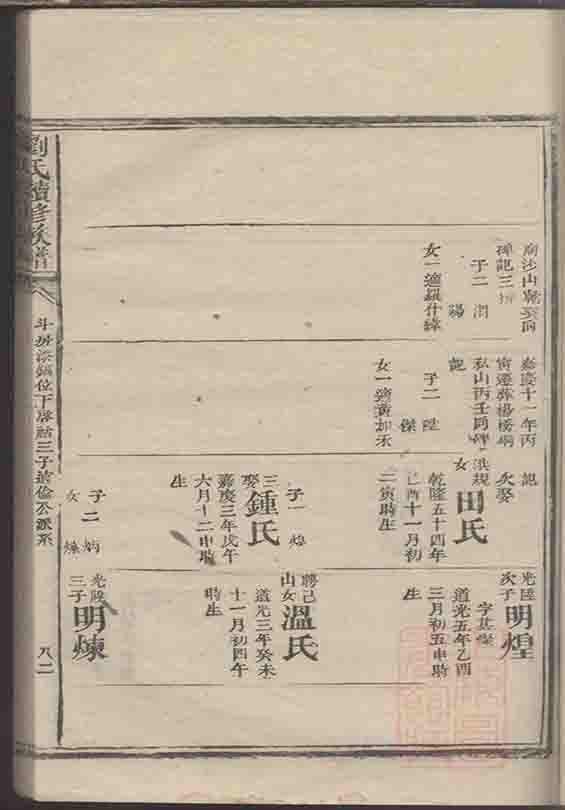 劉氏續修族譜
八
斗房
位下啓
三子
倫公派系
八二
廟沙山
碑記三
子二 潤
陽
女一適羅什緯
嘉慶十一年丙
寅遷葬楊橋
私山丙壬同碑
記
子二 陞
傑
女一適黃如禾
記
次娶
洪規
女
田氏
乾隆五十四年
己酉十一月初
二寅時生
子一 煌
三
娶
鍾氏
嘉慶三年戊午
六月十二申時
生
子二 炳
煉
女
光陞
次子
明煌
字其
道光五年乙酉
三月初五申時
生
勝己
山女
溫氏
道光三年癸未
十一月初四午
時生
光陞
三子
明煉